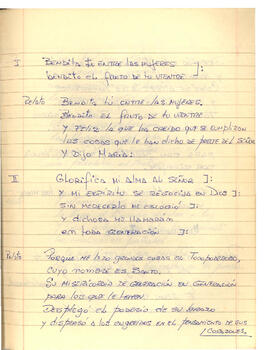 I BENDITA TU ENTRE LAS MUJERES
BENDITO EL FRUTO DE TU VIENTRE ]:
Relato BENDITA TU ENTRE LAS MUJERES.
BENDITO EL FRUTO DE TU VIENTRE
Y FELIZ LA QUE HA CREIDO QUE SE CUMPLIRAN
LAS COSAS QUE LE HAN DICHO DE PARTE DEL SEÑOR
Y DIJO MARIA:
II GLORIFICA MI ALMA AL SEÑOR ]:
Y MI ESPIRITU SE REGOCIJA EN DIOS ]:
SIN MERECERLO ME ESCOGIÓ ]:
Y DICHOSA ME LLAMARÁN
EN TODA GENERACIÓN ]:
Relato PORQUE ME HIZO GRANDES COSAS EL TODOPODEROSO,
CUYO NOMBRE ES SANTO.
SU MISERICORDIA DE GENERACIÓN EN GENERACIÓN
PARA LOS QUE LE TEMEN.
DESPLEGÓ EL PODERIO DE SU BRAZO
Y DISPERSÓ A LOS ENGREIDOS EN EL PENSAMIENTO DE SUS
/CORAZONES.